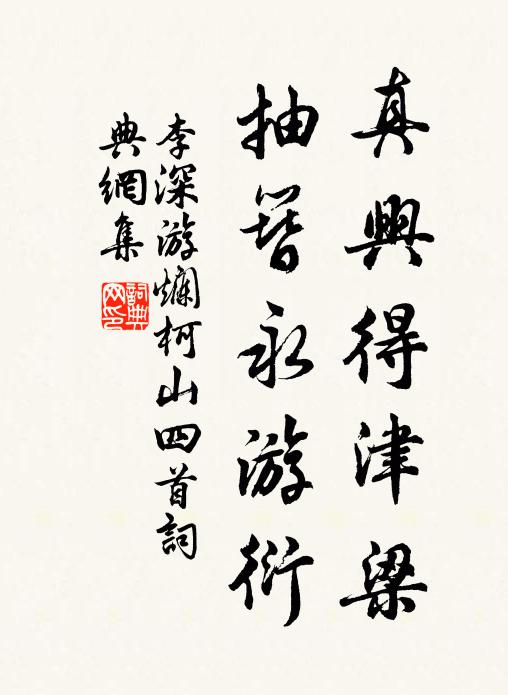 真興得津梁
抽簪永游衍
李深游爛柯山四首詞
典網集
詞典
网印